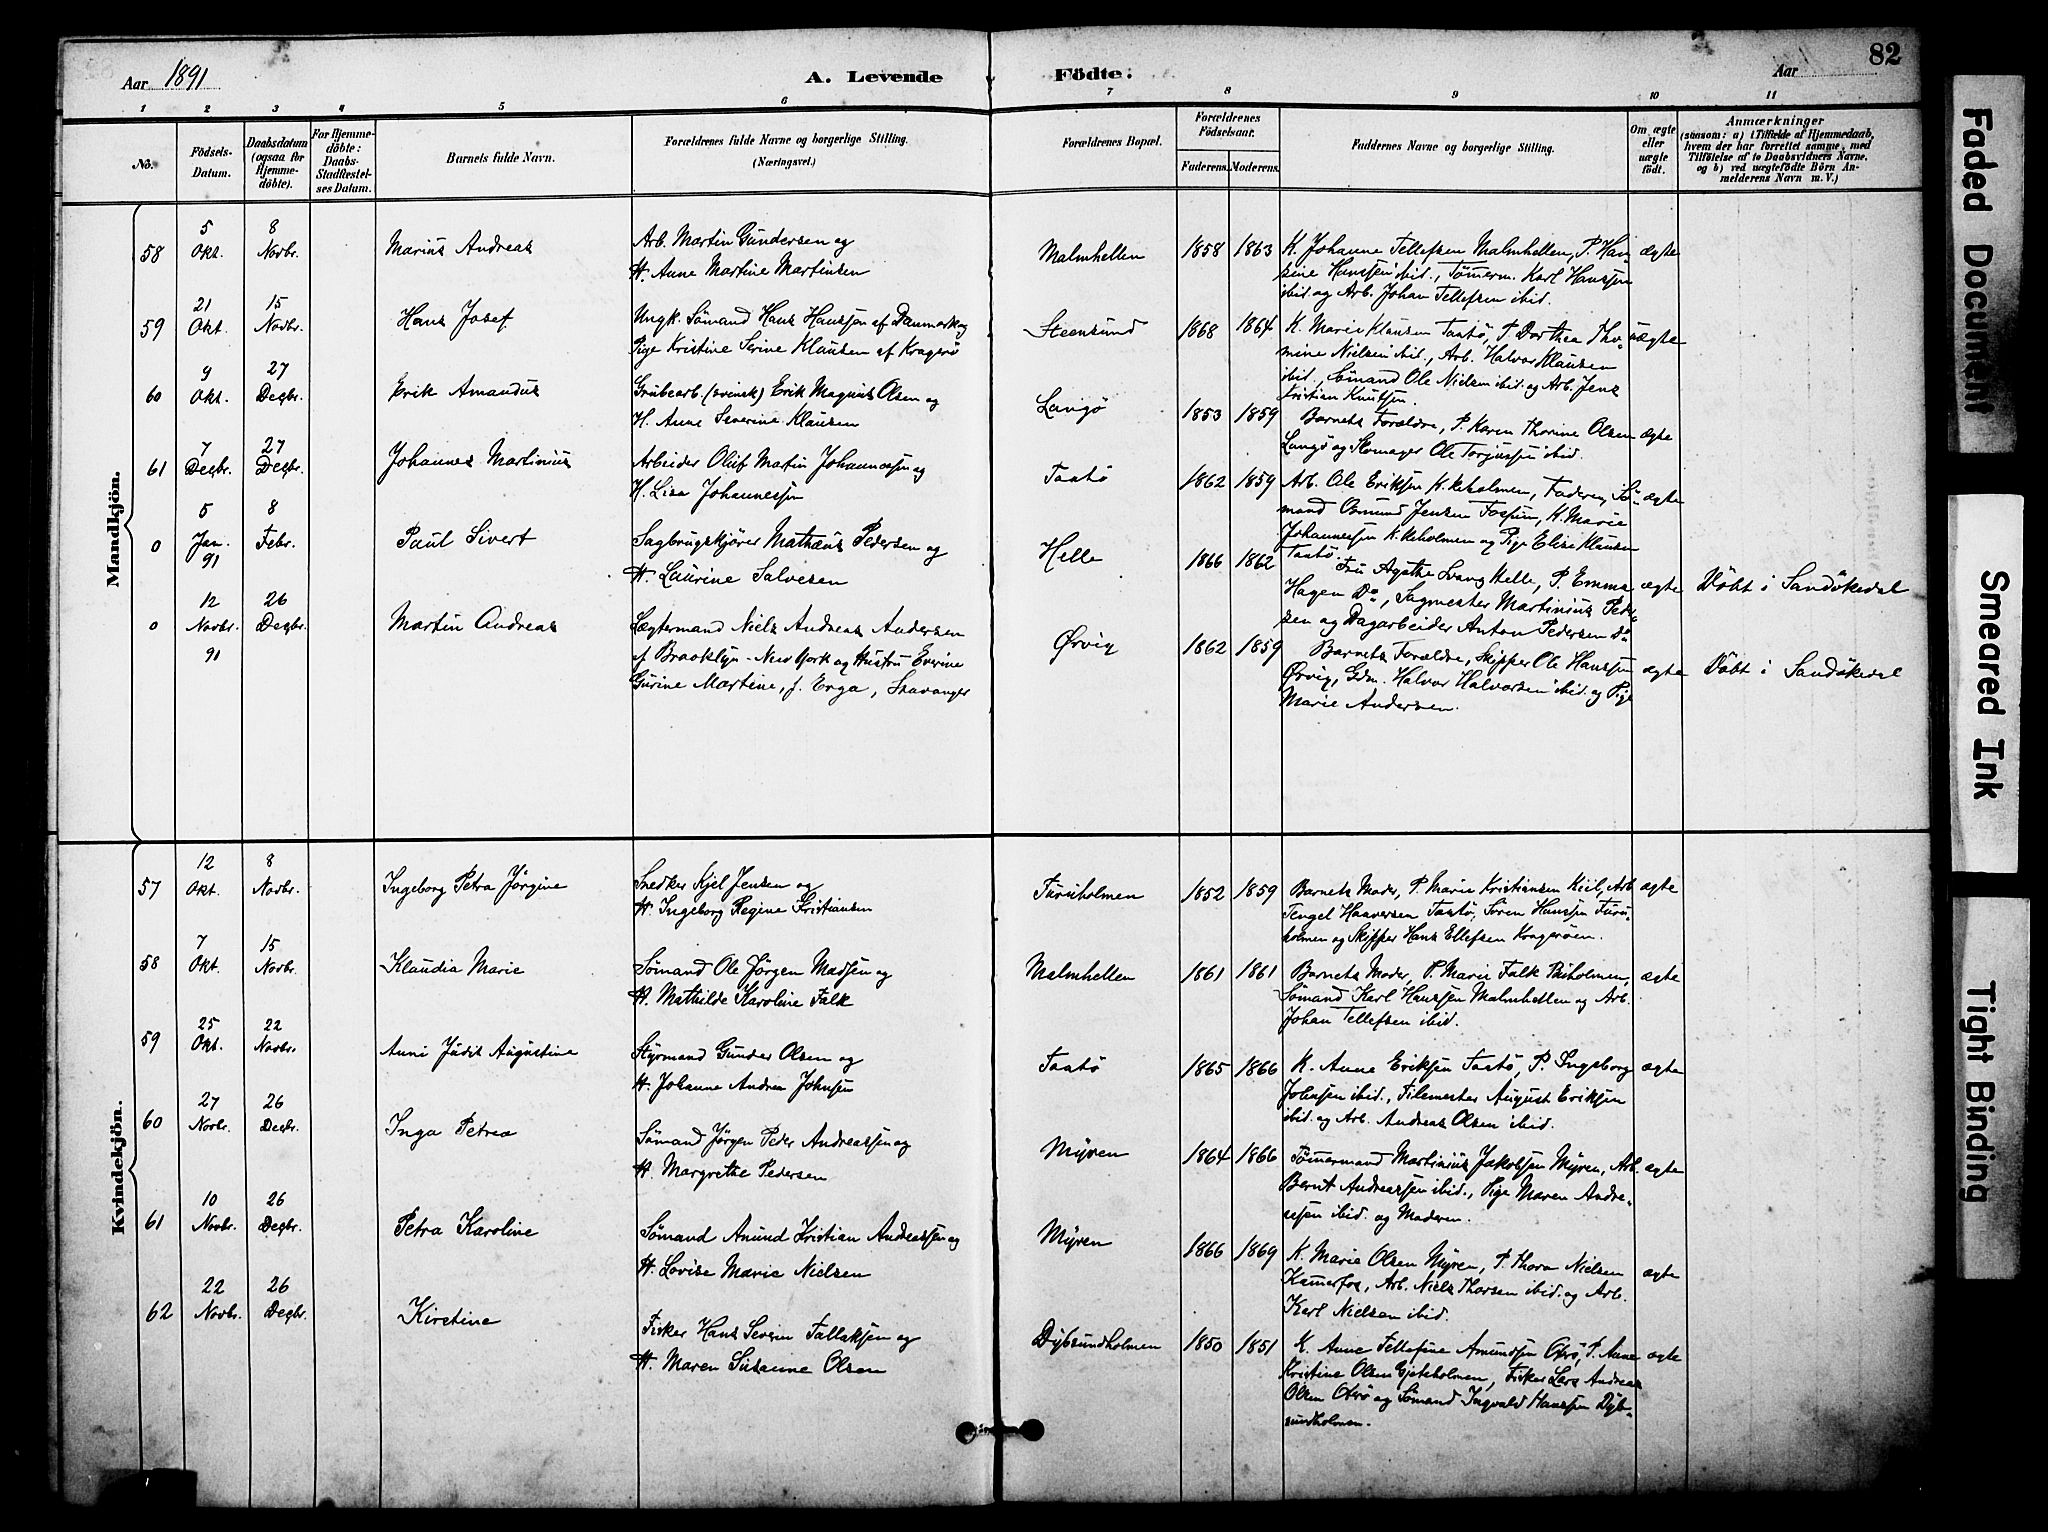 82
Aar 1891
A. Levende Födte.
Aar
1 2 3 4 5 6 7 8 9 10 11
No.
Födsels-
Datum.
Daabsdatum
(ogsaa for
Hjemme-
döbte).
For Hjemme-
döbte:
Daabs-
Stadfæstel-
ses Datum.
Barnets fulde Navn.
Forældrenes fulde Navne og borgerlige Stilling.
(Næringsvei.)
Forældrenes Bopæl.
Forældrenes
Födselsaar.
Faderens. Moderens.
Faddernes Navne og borgerlige Stilling.
Om ægte
eller
uægte
födt.
Anmærkninger
(saasom: a) i Tilfælde af Hjemmedaab,
hvem der har forrettet samme, med
Tilföielse af to Daabsvidners Navne.
og b) ved uægtefödte Börn An-
melderens Navn m. V.)
Mandkjön.
58
5
Okt.
8
Novbr.
Marius Andreas
Arb. Martin Gundersen og
H. Anne Martine Martinsen
Malmhellen
1858 1863
K. Johanne Tellefsen Malmhellen, P. Han-
sine Hanssen ibid., Tømerm. Karl Hanssen
ibid. og Arb. Johan Tellefsen ibid.
ægte
59
21
Okt.
15
Novbr.
Hans Josef
Ungk. Sømand Hans Hanssen af Danmark og
Pige Kristine Serine Klausen af Kragerø
Steensund
1868 1864
K. Marie Klausen Taatø, P. Dorthea Tho-
mine Nielsen ibid., Arb. Halvor Klausen
ibid., Sømand Ole Nielsen ibid. og Arb. Jens
Kristian Knutsen.
uægte
60
9
Okt.
27
Decbr.
Erik Amandus
Grubearb. (svensk) Erik Magnus Olsen og
H. Anne Severine Klausen
Langø
1853 1859
Barnets Forældre, P. Karen Thorine Olsen
Langø og Skomager Ole Torjussen ibid.
ægte
61
7
Decbr.
27
Decbr.
Johannes Martinius
Arbeider Oluf Martin Johannessen og
H. Lisa Johannessen
Taatø
1862 1859
Arb. Ole Eriksen K.keholmen, Faderen, Sø-
mand Osmund Jensen Fossum, K. Marie
Johannessen K.keholmen og Pige Elise Klausen
Taatø.
ægte
0
5
Jan.
91
8
Febr.
Paul Sivert
Sagbrugskjører Mathæus Pedersen og
H. Laurine Salvesen
Helle
1866 1862
Fru Agathe Svang Helle, P. Emma
Hagen Do, Sagmester Martinius Peder-
sen og Dagarbeider Anton Pedersen Do
ægte
Døbt i Sandøkedal
0
12
Novbr.
91
26
Decbr.
Martin Andreas
Lægtermand Niels Andreas Andersen
af Brooklyn - New York og Hustru Everine
Gurine Martine, f. Erga, Stavanger
Ørvig
1862 1859
Barnets Forældre, Skipper Ole Hanssen
Ørvig, Gdm. Halvor Halvorsen ibid. og Pige
Marie Andersen.
ægte
Døbt i Sandøkedal
Kvindekjön.
57
12
Okt.
8
Novbr.
Ingeborg Petra Jørgine
Snedker Kjel Jensen og
H. Ingeborg Regine Kristiansen
Furuholmen
1852 1859
Barnets Moder, P. Marie Kristiansen Kiil, Arb.
Tengel Haaversen Taatø, Søren Hanssen Furu-
holmen og Skipper Hans Ellefsen Kragerøen.
ægte
58
7
Okt.
15
Novbr.
Klaudia Marie
Sømand Ole Jørgen Madsen og
H. Mathilde Karoline Falk
Malmhellen
1861 1861
Barnets Moder, P. Marie Falk
Sømand Karl Hanssen Malmhellen og Arb.
Johan Tellefsen ibid.
ægte
59
25
Okt.
22
Novbr.
Anni Judit Augustine
Styrmand Gunder Olsen og
H. Johanne Andrea Johnsen
Taatø
1865 1866
K. Anne Eriksen Taatø, P. Ingeborg
Johnsen ibid., Filemester August Eriksen
ibid. og Arb. Andreas Olsen ibid.
ægte
60
27
Novbr.
26
Decbr.
Inga Petrea
Sømand Jørgen Peder Andreassen og
H. Margrethe Pedersen
Myren
1864 1866
Tømmermand Martinius Jakobsen Myren, Arb.
Bernt Andreassen ibid., Pige Maren Andre-
assen ibid. og Moderen.
ægte
61
10
Novbr.
26
Decbr.
Petra Karoline
Sømand Anund Kristian Andreassen og
H. Lovise Marie Nielsen
Myren
1866 1869
K. Marie Olsen Myren, P. Thora Nielsen
Kamerfos, Arb. Niels Thorsen ibid. og Arb.
Karl Nielsen ibid.
ægte
62
22
Novbr.
26
Decbr.
Kirstine
Fisker Hans Severin Tallaksen og
H. Maren Susanne Olsen
Dybsundholmen
1850 1851
K. Anne Tellefine Amundsen Oterø, P. Anne
Kristine Olsen Gjeteholmen, Fisker Lars Andreas
Olsen Oterø og Sømand Ingvald Hanssen Dyb-
sundholmen.
ægte
Faded Document
Smeared Ink
Tight Binding